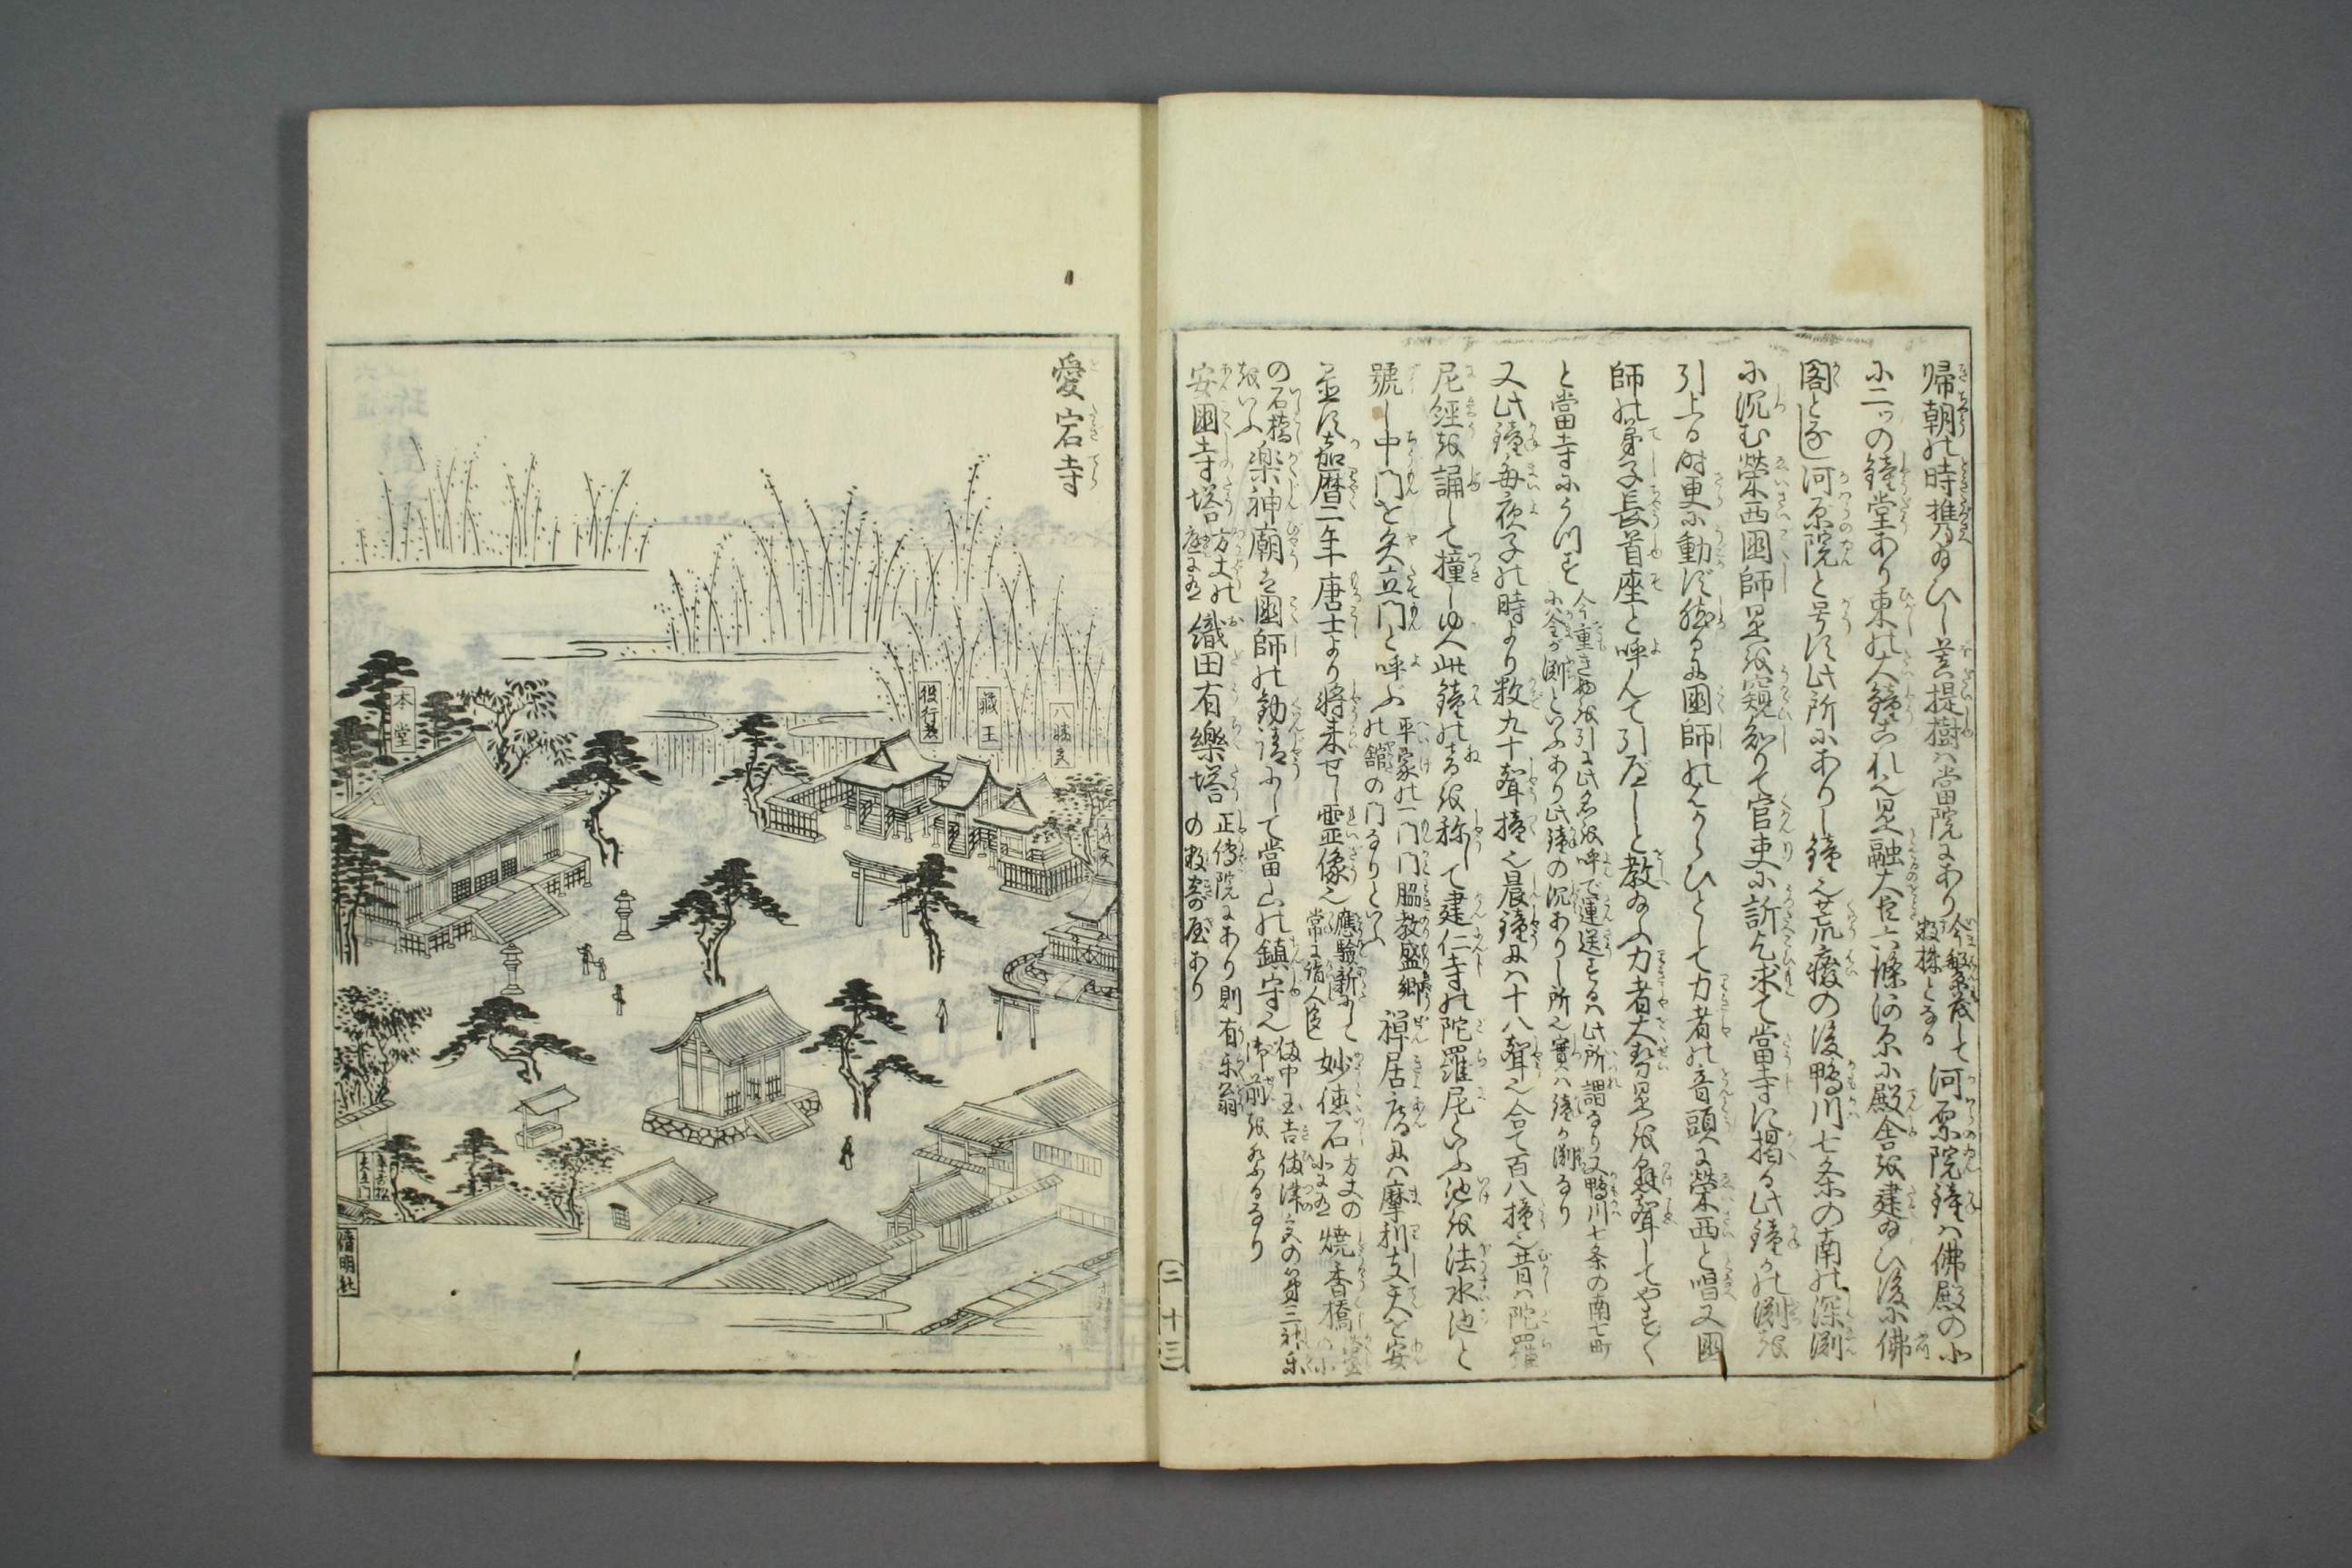 帰朝の時携給ひし菩提樹ハ当院にあり今繁茂して数株となる河原院鐘ハ佛殿の北
に二ツの鐘堂あり東の大鐘これ也是融大臣六條河原に殿舎を建給ひ後に佛
閣となし河原院と号す此所にありし鐘也荒廃の後鴨川七条の南の深渕
に沈む栄西国師是を窺知りて官吏に訴え求て當寺に掲る此鐘かの渕を
引上る時更に動ず然るに國師のはからひとして力者の音頭に栄西と唱又國
師の弟子長首座と呼んで引べしと教給ふ力者大勢是を懸聲してやすく
と當寺にかけす今重き物を引に此名を呼で運送するハ此所謂なり又鴨川七条の南七町に釜が渕といふあり此鐘の沉ありし所也實ハ鐘が渕なり
又此鐘毎夜子の時より数九十聲撞也晨鐘にハ十八聲也合て百八撞也昔ハ陀羅
尼經を誦して撞しゆへ此鐘の音を称して建仁寺の陀羅尼といふ池を法水池と
號し中門を矢立門と呼ぶ平家の一門門脇教盛郷の舘の門なりといふ禅居庵にハ摩利支天を安
置す嘉暦二年唐土より将来せし霊像也應験新にして常に詣人多し妙徳石方丈の北にあり焼香橋
の石橋をいふ楽神廟は國師の勧請にして當山の鎮守也備中玉吉備津宮の第三神楽御前を祭るなり
安國寺塔方丈の庭にあり織田有樂塔正傳院にあり則有楽翁の数寄屋あり
二十三
愛宕寺
八坂
蔵王
役行者
本堂
清明社